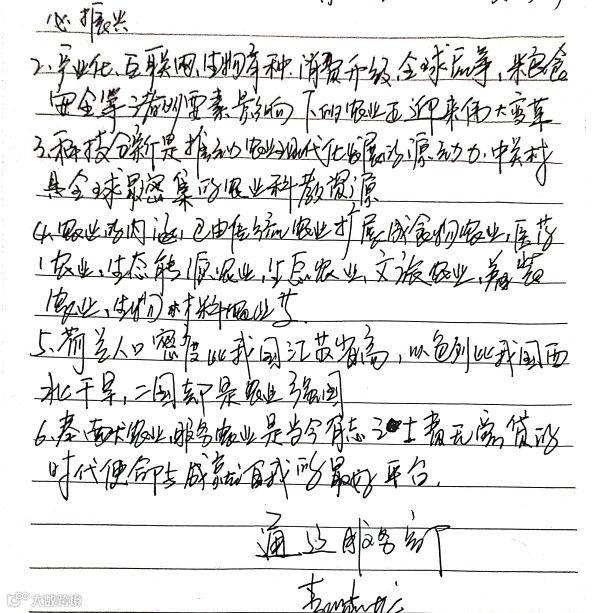 心振兴
2、产业化、互联网、生物育种、消费升级、全球竞争、粮食
安全等诸多要素影响下的农业正迎来伟大变革
3、科技创新是推动农业现代化发展的源动力,中关村
具全球最密集的农业科教资源
4、农业的内涵,已由传统农业扩展成食物农业,医药
农业,生态能源农业,生态农业,文旅农业,
农业,生物材料农业等
5、荷兰人口密度比我国江苏省高,以色列比我国西
北干旱,二国都是农业强国
6、农业,服务农业是当今有志之士责无旁贷的
时代使命与成就自我的最好平台.
服务部
大数跨境